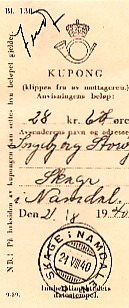 Bl. 130.
KUPONG
(klippes fra av mottageren.)
Anvisningens beløp:
28 kr. 64 øre
Avsenderens navn og adresse:
Ingeborg
i Namdal.
Den 21/8 19
SKAGE I NAMDAL
21 VIII 40
Innbetalingsstedets
datostempel.
9-39.
NB.: På baksiden av kupongen kan settes hva beløpet gjelder.